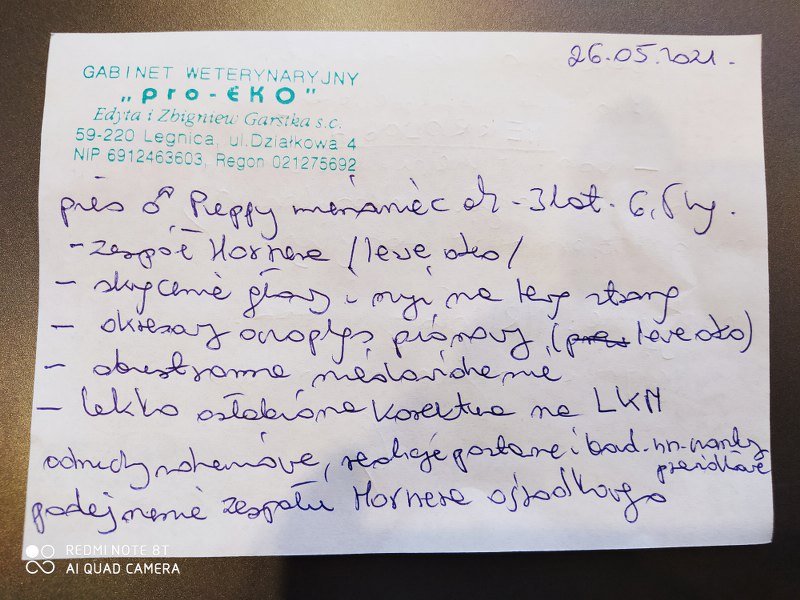 26.05.2021.
GABINET WETERYNARYJNY
„pro-EKO"
Edyta i Zbigniew Garstka s.c.
59-220 Legnica, ul.Działkowa 4
NIP 6912463603, Regon 021275692
pies ♂ Peppy mieszaniec ok - 3 lat. 6,5 kg.
- zespół Hornera /lewe oko/
- skręcenie głowy i szyi na lewą stronę
- okresowy oczopląs pionowy, (lewe oko)
- obustronne niedowidzenie
- lekko osłabiona korektura na LKM
odruchy rdzeniowe, reakcje postawne i bad. nn. w normie
prawidłowe
podejrzenie zespołu Hornera ośrodkowego
REDMI NOTE 8T
AI QUAD CAMERA